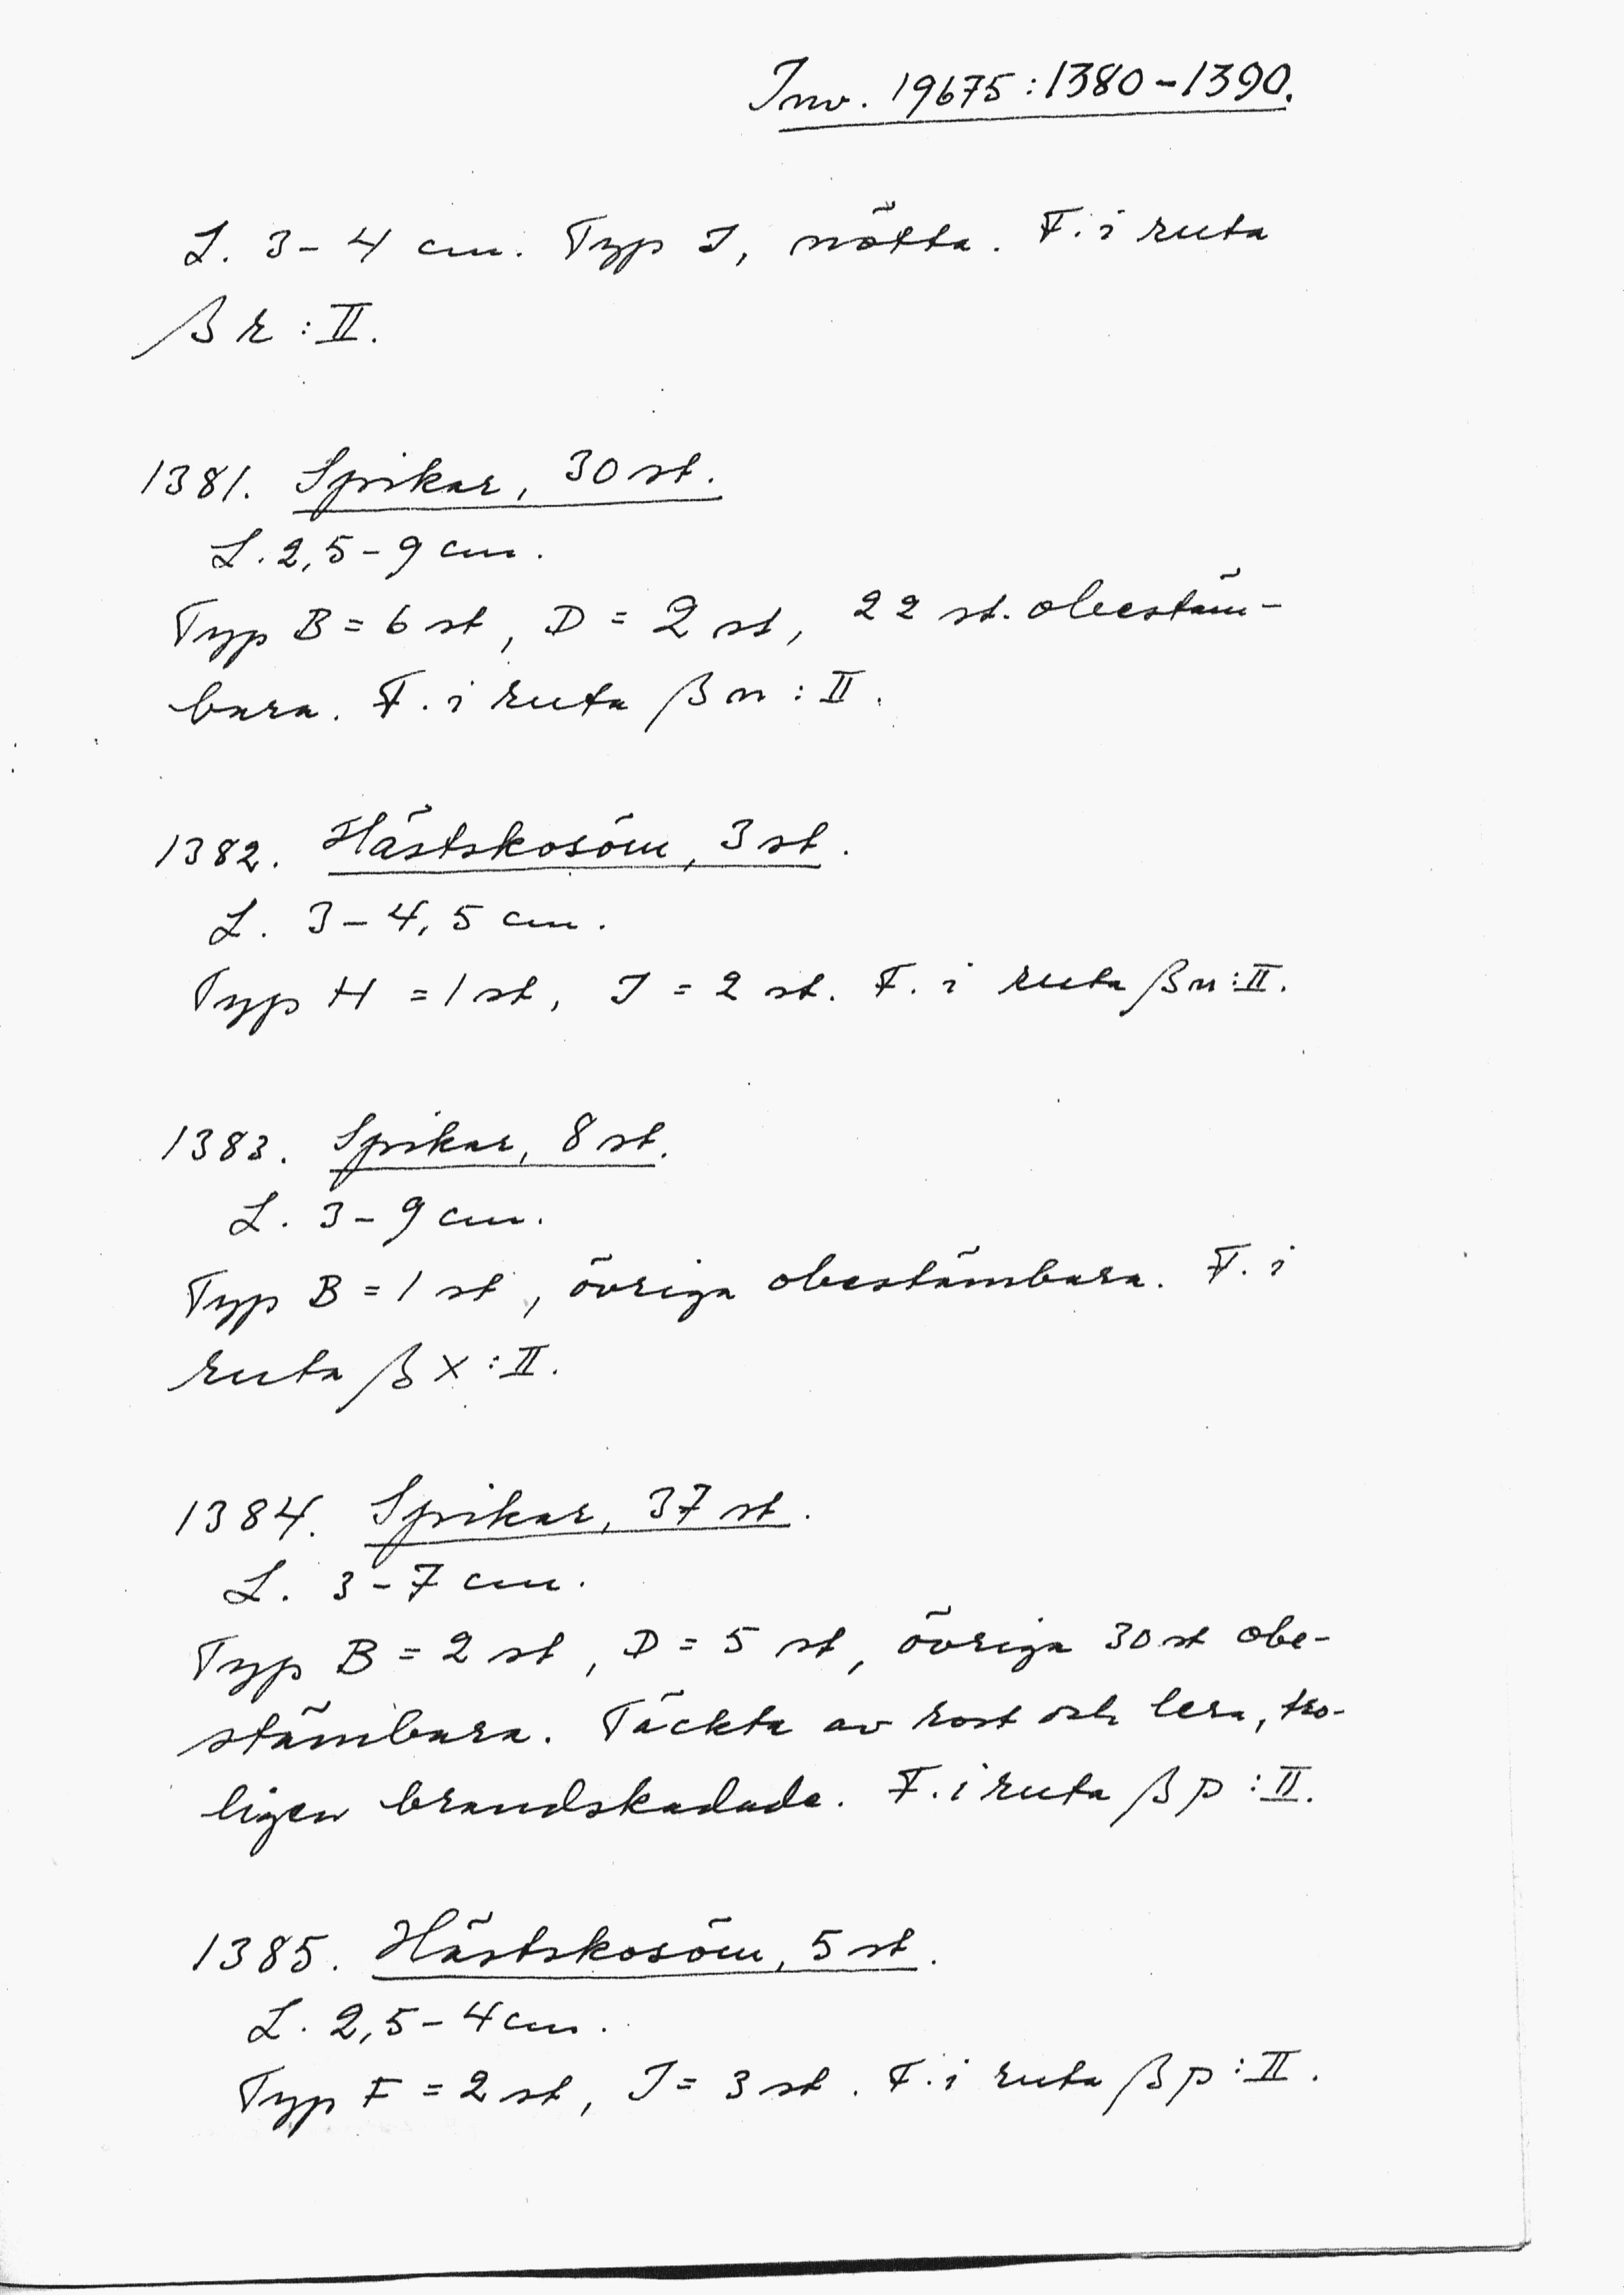 Inv. 19675:1380-1390.
L. 3-4 cm. Typ I, nötta. F. i ruta
βr:II.
1381. Spikar, 30 st.
L. 2,5-9 cm.
Typ B = 6 st, D = 2 st, 22 st. obestäm-
bara. F. i ruta βn:II.
1382. Hästskosöm, 3 st.
L. 3-4,5 cm.
Typ H = 1 st, I = 2 st. F. i ruta βn:II.
1383. Spikar, 8 st.
L. 3-9 cm.
Typ B = 1 st, övriga obestämbara. F. i
ruta βx:II.
1384. Spikar, 37 st.
L. 3-7 cm.
Typ B = 2 st, D = 5 st, övriga 30 st obe-
stämbara. Täckta av rost och lera, tro-
ligen brandskadade. F. i ruta βp:II.
1385. Hästskosöm, 5 st.
L. 2,5-4 cm.
Typ F = 2 st, I = 3 st. F. i ruta βp:II.